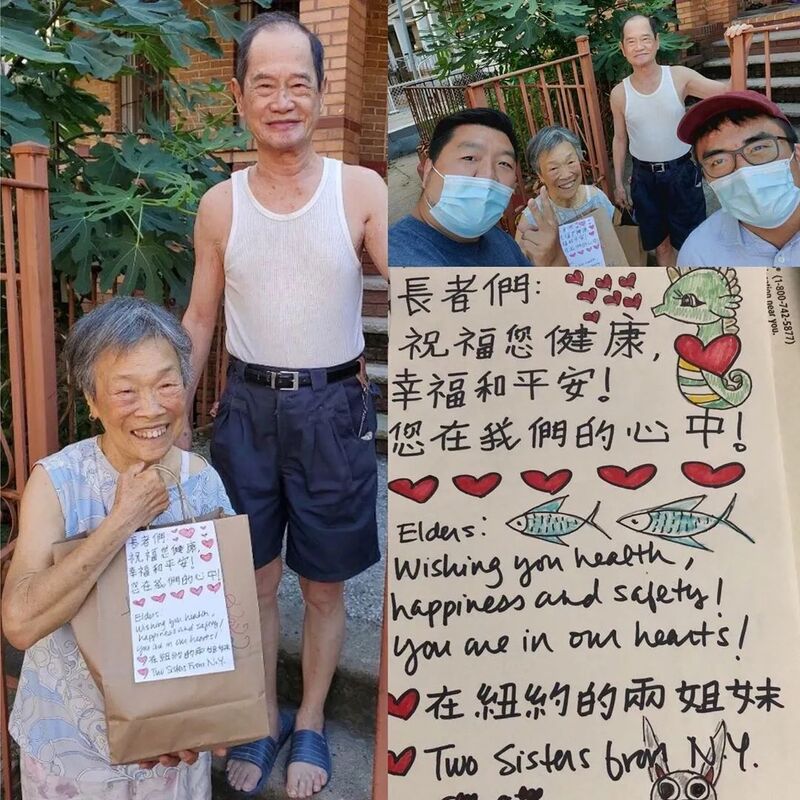 長者們:
祝福您健康,
幸福和平安!
您在我們的心中!
Elders:
Wishing you health,
happiness and safety!
you are in our hearts!
在紐約的兩姐妹
Two Sisters From N.Y.
長者們:
祝福您健康,
幸福和平安!
您在我們的心中!
Elders:
Wishing you health,
happiness and safety!
you are in our hearts!
在紐約的兩姐妹
Two Sisters from N.Y.
(1-800-742-5877)
near you.